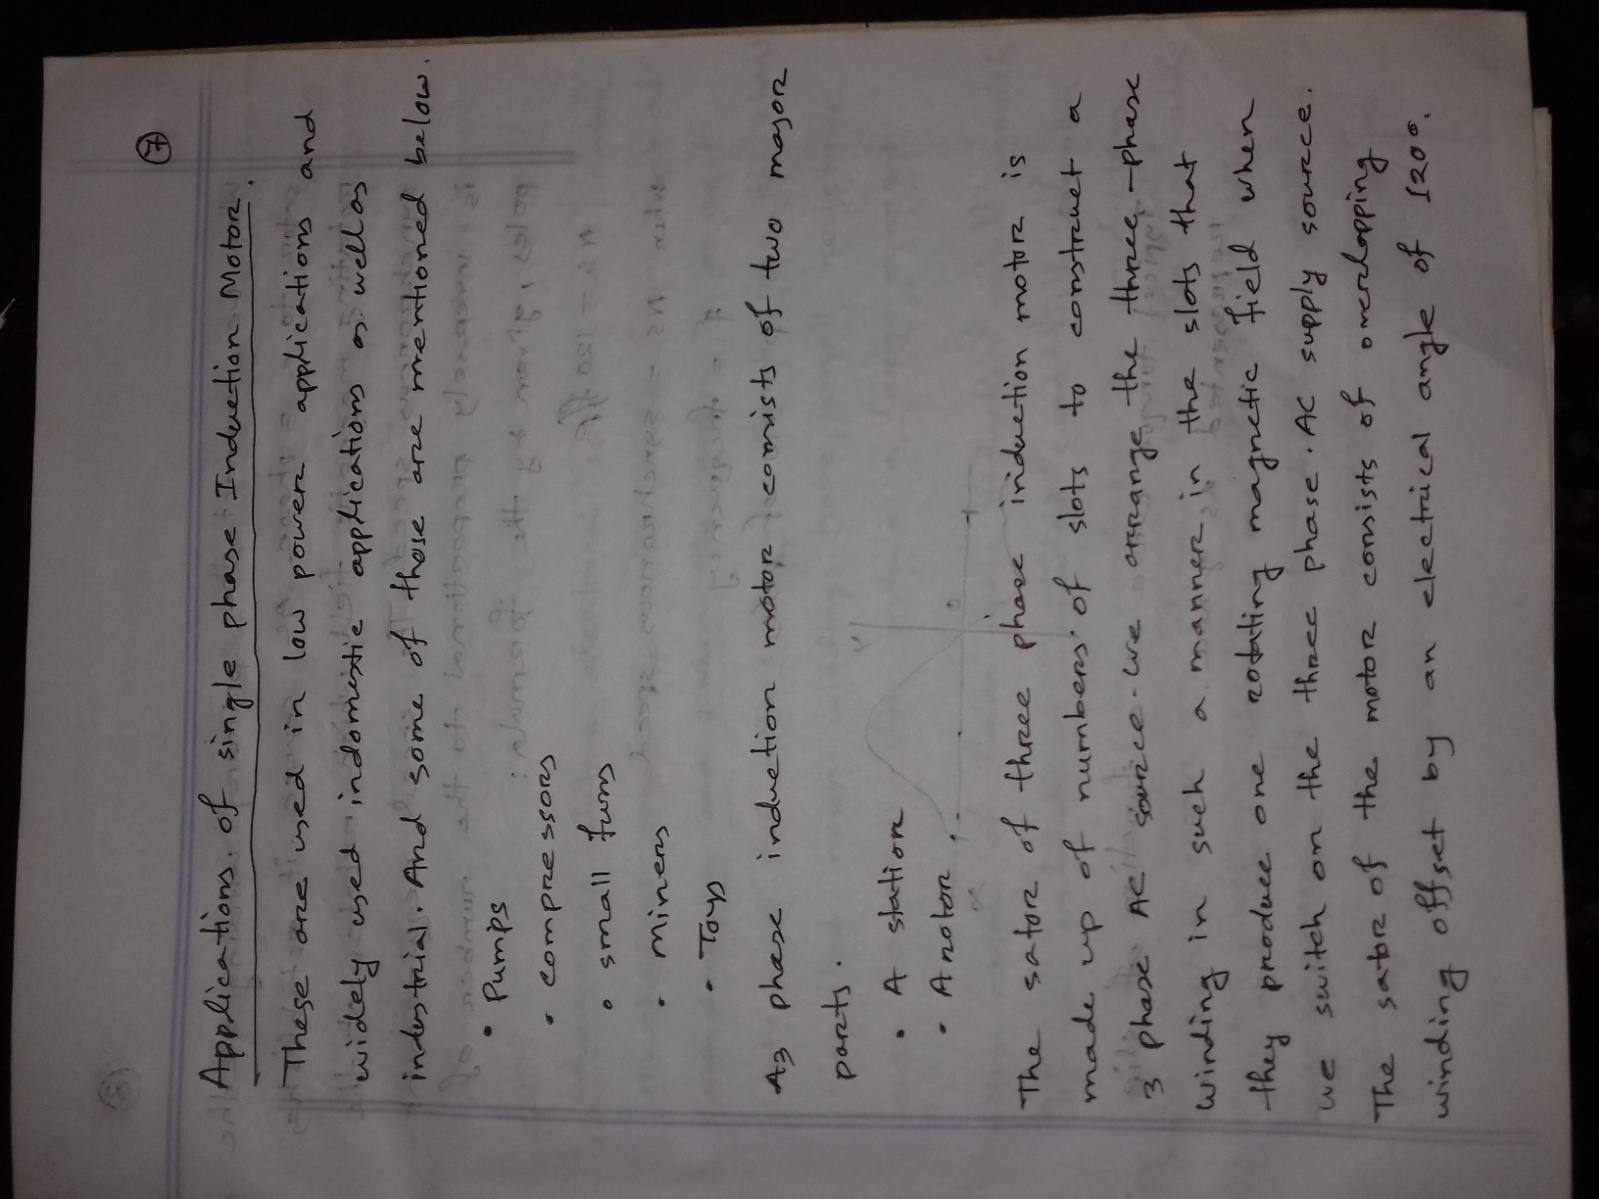 7
Applications of single phase Induction Motor.
These are used in low power applications and
widely used indomistic applications as well as
industrial. And some of those are mentioned below.
• Pumps
• compressors
• small funs
• miners
• Toys
A3 phase induction motor consists of two major
parts.
• A station
• A rotor
The sator of three phase induction motor is
made up of numbers of slots to construct a
3 phase AC source. we arrange the three-phase
winding in such a manner in the slots that
they produce one rotating magnetic field when
we switch on the three phase. AC supply source.
The sator of the motor consists of overlapping
winding offset by an electrical angle of 120°.